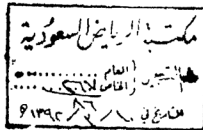 مكتبة الرياض السعودية
التسجيل العام
الخاص
التاريخ في ١٣٩٢